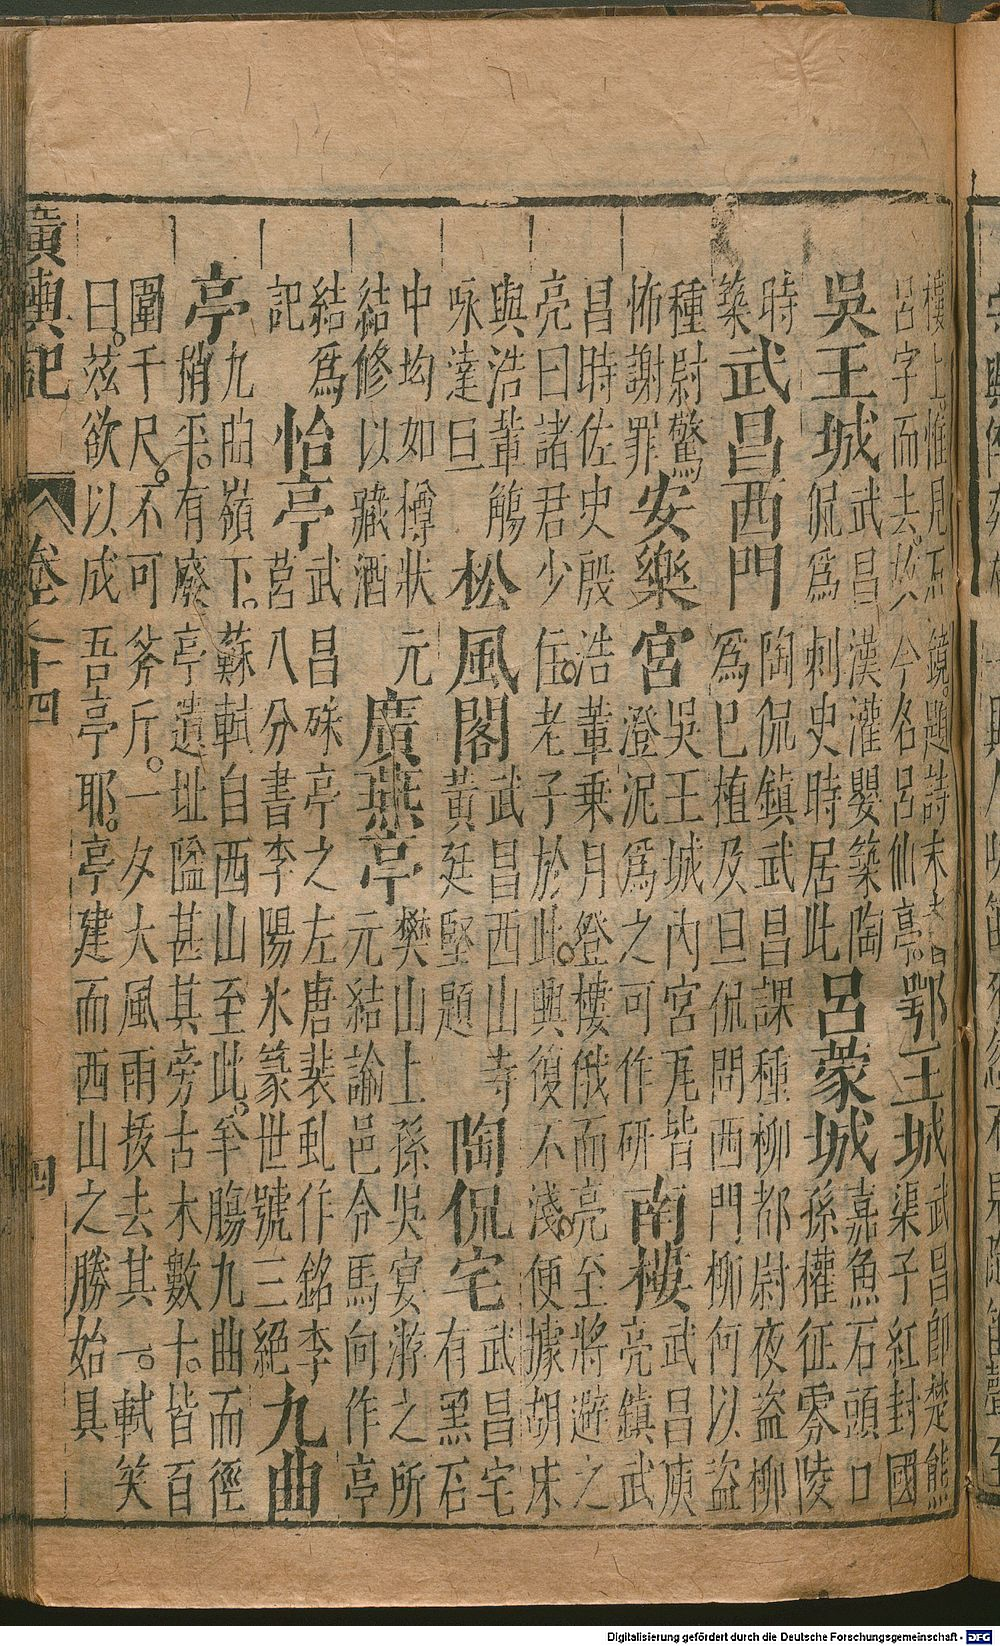 樓上惟見石鏡。題詩末書
呂字而去。故今名呂仙亭。
鄂王城
武昌卽楚熊
渠子紅封國
吳王城
武昌漢灌嬰築陶
侃爲刺史時居此
呂蒙城
嘉魚石頭口
孫權征零陵
時
築
武昌西門
陶侃鎮武昌課種柳都尉夜盜柳
爲巳植及旦侃問西門柳何以盜
種尉驚
怖謝罪
安樂宮
吳王城內宮瓦皆
澄泥爲之可作研
南樓
武昌庾
亮鎮武
昌時佐史殷浩輩乗月登樓俄而亮至將避之
亮曰諸君少住。老子於此。興復不淺。便據胡床
與浩輩觴
咏達旦
松風閣
武昌西山寺
黃廷堅題
陶侃宅
武昌宅
有黑石
中均如樽狀元
結修以藏酒
廣燕亭
樊山上孫吳宴游之所
元結諭邑令馬向作亭
結爲
記
怡亭
武昌硃亭之左唐裴虬作銘李
莒八分書李陽氷篆世號三絕
九曲
亭
九曲嶺下。蘇軾自西山至此。羊腸九曲而徑
稍平。有廢亭遺址隘甚其旁古木數十。皆百
圍千尺。不可斧斤。一夕大風雨拔去其一。軾笑
曰。茲欲以成吾亭耶。亭建而西山之勝始具
廣輿記 卷之十四 四
Digitalisierung gefördert durch die Deutsche Forschungsgemeinschaft - DFG